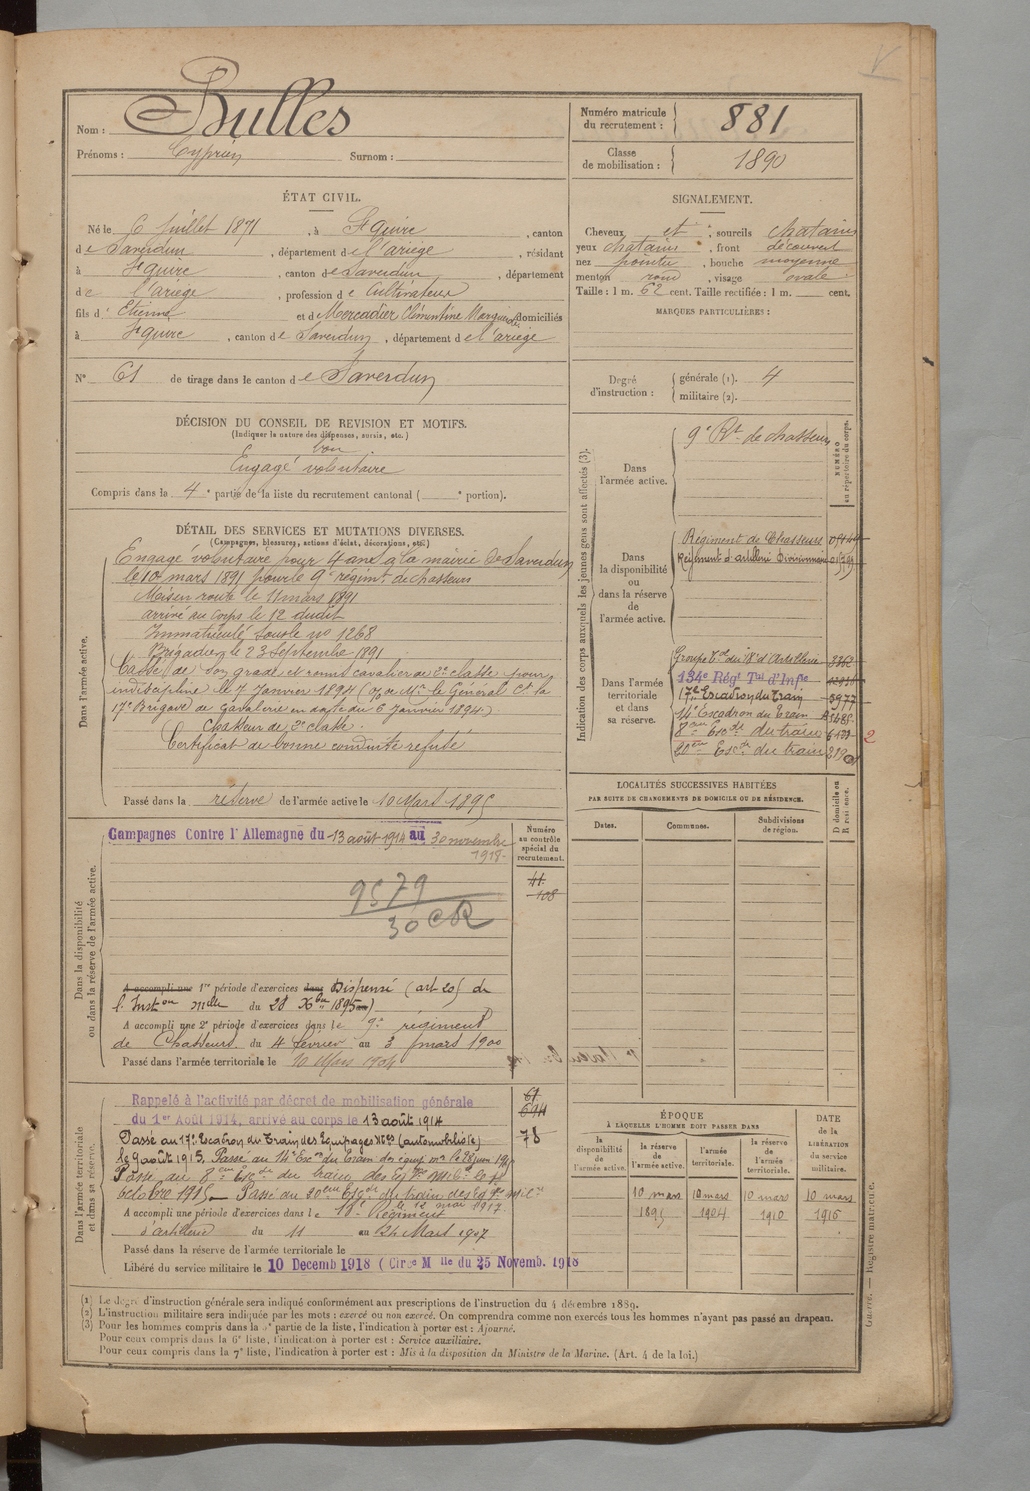 Nom : Bulles
Prénoms : Cyprien Surnom :
Numéro matricule du recrutement : 881
Classe de mobilisation : 1890
ÉTAT CIVIL.
Né le 6 Juillet 1871, à St Quirc, canton
de Saverdun, département de l'ariège, résidant
à St Quirc, canton de Saverdun, département
de l'ariège, profession de Cultivateur
fils d' Etienne et de Mercadier Clémentine Marguerite domiciliés
à St Quirc, canton de Saverdun, département de l'ariège
N° 61 de tirage dans le canton de Saverdun
SIGNALEMENT.
Cheveux et, sourcils chatains
yeux chatains, front découvert
nez pointu, bouche moyenne
menton rond, visage ovale
Taille : 1 m. 62 cent. Taille rectifiée : 1 m. cent.
MARQUES PARTICULIÈRES :
Degré d'instruction : générale (1). 4
militaire (2).
DÉCISION DU CONSEIL DE REVISION ET MOTIFS.
(Indiquer la nature des dispenses, sursis, etc.)
bon
Engagé volontaire
Compris dans la 4e partie de la liste du recrutement cantonal ( e portion).
DÉTAIL DES SERVICES ET MUTATIONS DIVERSES.
(Campagnes, blessures, actions d'éclat, décorations, etc.)
Dans l'armée active.
Engagé volontaire pour 4 ans à la mairie de Saverdun
le 10 mars 1891 pour le 9e régimt de chasseurs
Mis en route le 11 mars 1891
arrivé au corps le 12 dudit
Immatriculé sous le no 1268
Brigadier le 23 Septembre 1891
Cassé de son grade et remis cavalier de 2e classe pour
indiscipline le 7 Janvier 1894 (
17e Brigade de Cavalerie en date du 6 Janvier 1894.)
Chasseur de 2e classe.
Certificat de bonne conduite refusé
Passé dans la réserve de l'armée active le 10 Mars 1895
Indication des corps auxquels les jeunes gens sont affectés (3).
NUMÉRO au répertoire du corps.
Dans l'armée active.
9e Rt de chasseurs
Dans la disponibilité ou dans la réserve de l'armée active.
Régiment de Chasseurs
Régiment d'artillerie Divisionnaire
Dans l'armée territoriale et dans sa réserve.
Groupe Tal du 18e d'Artillerie 3362
134e Régt Tal d'Infie
17e Escadron du Train 3977
14e Escadron du Train
8eme Escon du train 6133
20eme Escon du train
2
Dans la disponibilité ou dans la réserve de l'armée active.
Campagnes Contre l'Allemagne du 13 août 1914 au 30 novembre
1918.
Numéro au contrôle spécial du recrutement.
41
108
9579
30 CR
A accompli une 1re période d'exercices dans Dispensé (art 20) de
l'Inston melle du 28 Xbre 1895 au)
A accompli une 2e période d'exercices dans le 9e régiment
de Chasseurs du 4 février au 3 mars 1900
Passé dans l'armée territoriale le 10 Mars 1904
LOCALITÉS SUCCESSIVES HABITÉES
PAR SUITE DE CHANGEMENTS DE DOMICILE OU DE RÉSIDENCE.
Dates. Communes. Subdivisions de région. D domicile ou R résidence.
Dans l'armée territoriale et dans sa réserve.
Rappelé à l'activité par décret de mobilisation générale
du 1er Août 1914, arrivé au corps le 13 août 1914
Passé au 17e Escadron du Train des Equipages Mres (automobiliste)
le 9 août 1915. Passé au 14e Escon du Train des équip. mres le 28 juin 19
Passé au 8eme Escon du train des Eq. Mil. le
octobre 1915 Passé du 20eme Escon du train des Eq. Mil.
le 12 mai 1917.
A accompli une période d'exercices dans le 18e Régiment
d'artillerie du 11 au 24 Mars 1907
Passé dans la réserve de l'armée territoriale le
Libéré du service militaire le 10 Decemb 1918 (Circe Mlle du 25 Novemb. 1918
61
694
78
ÉPOQUE
À LAQUELLE L'HOMME DOIT PASSER DANS
la disponibilité de l'armée active. la réserve de l'armée active. l'armée territoriale. la réserve de l'armée territoriale.
DATE de la LIBÉRATION du service militaire.
10 mars 10 mars 10 mars 10 mars
1895 1904 1910 1916
(1) Le degré d'instruction générale sera indiqué conformément aux prescriptions de l'instruction du 4 décembre 1889.
(2) L'instruction militaire sera indiquée par les mots : exercé ou non exercé. On comprendra comme non exercés tous les hommes n'ayant pas passé au drapeau.
(3) Pour les hommes compris dans la partie de la liste, l'indication à porter est : Ajourné.
Pour ceux compris dans la 6e liste, l'indication à porter est : Service auxiliaire.
Pour ceux compris dans la 7e liste, l'indication à porter est : Mis à la disposition du Ministre de la Marine. (Art. 4 de la loi.)
Guerre. — Registre matricule.